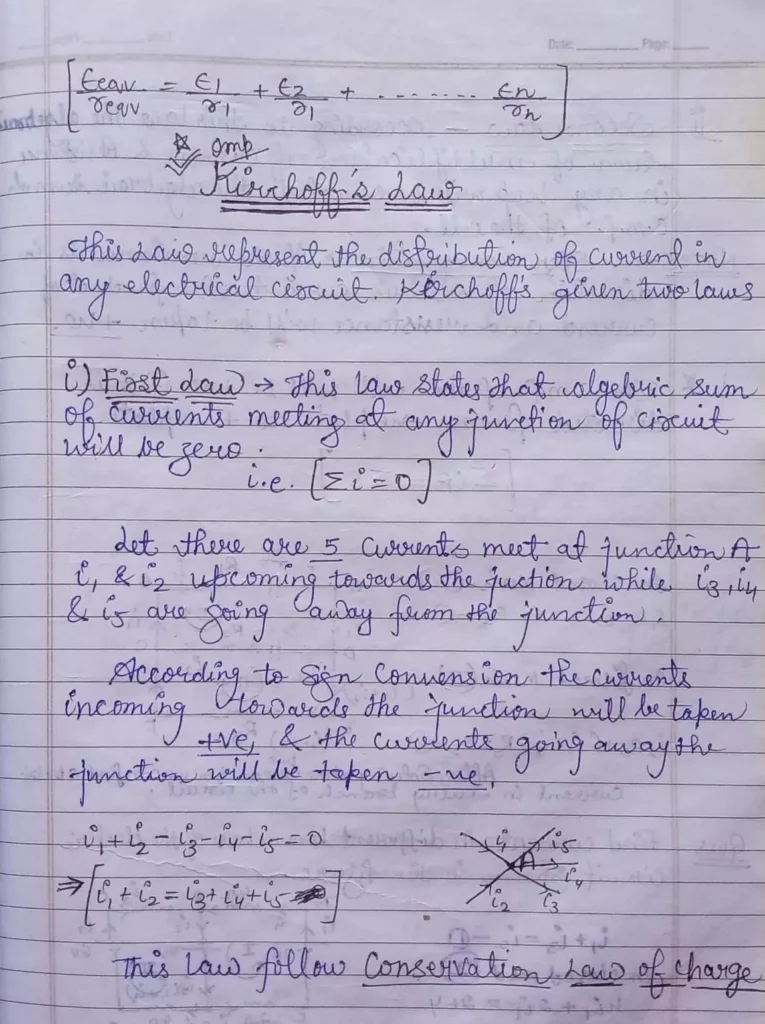 Date: Page:
[ϵeqv/reqv = ϵ1/r1 + ϵ2/r1 + ........ ϵn/rn]
imp
Kirchhoff's Law
This Law represent the distribution of current in
any electrical circuit. Kirchoff's given two laws
i) First Law → This law states that algebric sum
of currents meeting at any junction of circuit
will be zero.
i.e. [Σi=0]
Let there are 5 currents meet at junction A
i1 & i2 upcoming towards the juction while i3, i4
& i5 are going away from the junction.
According to sign convension the currents
incoming towards the junction will be taken
+ve, & the currents going away the
junction will be taken -ve.
i1+i2-i3-i4-i5=0
⇒ [i1+i2=i3+i4+i5]
i1 i5
A i4
i2 i3
This law follow Conservation Law of charge